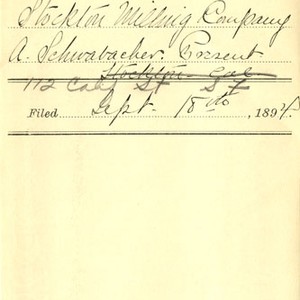 Stockton Milling Company
A. Schwabacher. Present
Stockton Cal
112 Calif St SF
Filed Sept. 18th, 189